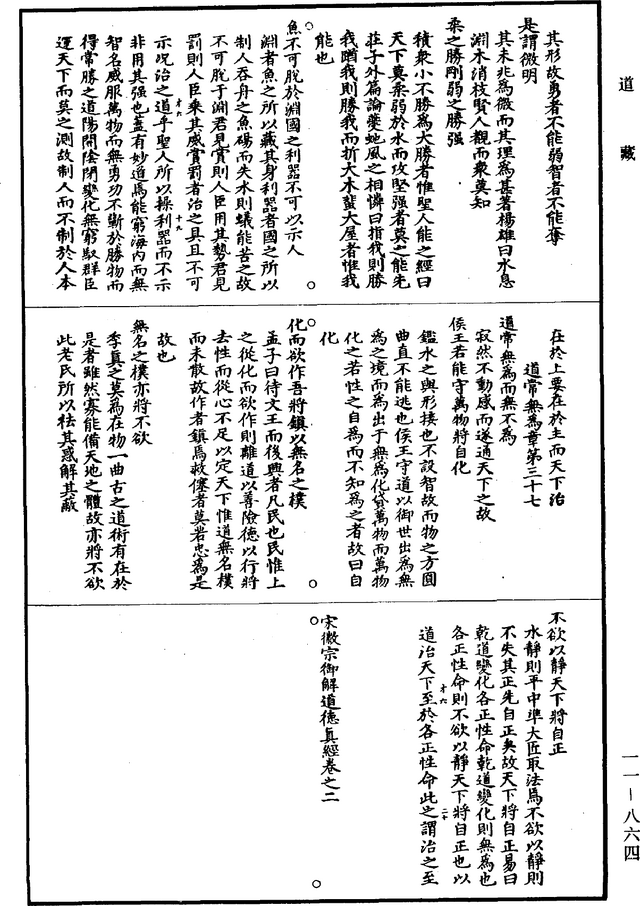 道藏
其形故勇者不能弱智者不能奪
是謂微明
其未兆為微而其理為甚著楊雄曰水息
淵木消枝賢人觀而衆莫知
柔之勝剛弱之勝強
積衆小不勝為大勝者惟聖人能之經曰
天下莫柔弱於水而攻堅強者莫之能先
莊子外篇論夔蚿風之相憐曰指我則勝
我鰌我則勝我而折大木蜚大屋者惟我
能也
魚不可脫於淵國之利器不可以示人
淵者魚之所以藏其身利器者國之所以
制人吞舟之魚碭而失水則蟻能苦之故
不可脫于淵君見賞則人臣用其勢君見
罰則人臣乘其威賞罰者治之具且不可
示況治之道乎聖人所以操利器而不示
非用其強也蓋有妙道焉能窮海內而無
智名威服萬物而無勇功不蘄於勝物而
得常勝之道陽開陰閉變化無窮馭群臣
運天下而莫之測故制人而不制於人本
在於上要在於主而天下治
道常無為章第三十七
道常無為而無不為
寂然不動感而遂通天下之故
侯王若能守萬物將自化
鑑水之與形接也不設智故而物之方圓
曲直不能逃也侯王守道以御世出為無
為之境而為出于無為化貸萬物而萬物
化之若性之自為而不知為之者故曰自
化
化而欲作吾將鎮以無名之樸
孟子曰待文王而後興者凡民也民惟上
之從化而欲作則離道以善險德以行將
去性而從心不足以定天下惟道無名樸
而未散故作者鎮焉救僿者莫若忠為是
故也
無名之樸亦將不欲
季真之莫為在物一曲古之道術有在於
是者雖然寡能備天地之體故亦將不欲
此老氏所以祛其惑解其蔽
不欲以靜天下將自正
水靜則平中準大匠取法焉不欲以靜則
不失其正先自正矣故天下將自正易曰
乾道變化各正性命乾道變化則無為也
各正性命則不欲以靜天下將自正也以
道治天下至於各正性命此之謂治之至
宋徽宗御解道德真經卷之二
一一－八六四